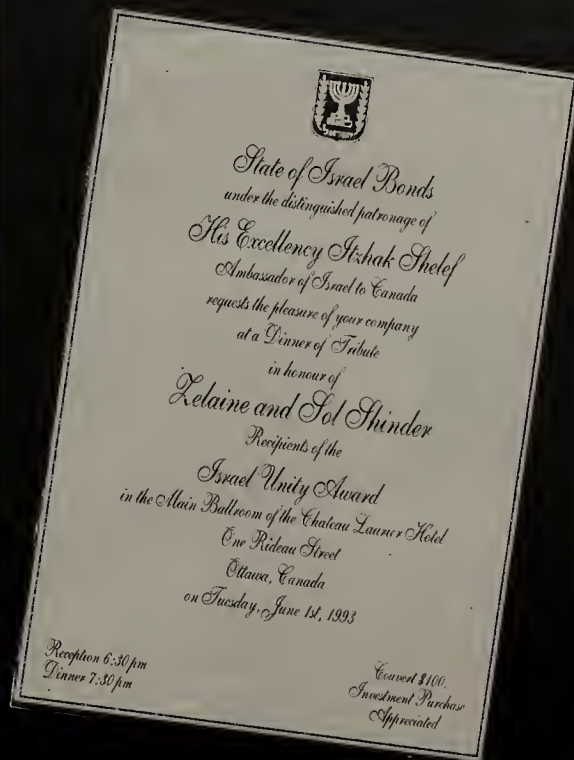 ישראל
State of Israel Bonds
under the distinguished patronage of
His Excellency Itzhak Shelef
Ambassador of Israel to Canada
requests the pleasure of your company
at a Dinner of Tribute
in honour of
Zelaine and Sol Shinder
Recipients of the
Israel Unity Award
in the Main Ballroom of the Chateau Laurier Hotel
One Rideau Street
Ottawa, Canada
on Tuesday, June 1st, 1993
Reception 6:30 pm
Dinner 7:30 pm
Couvert $100.
Investment Purchase
Appreciated